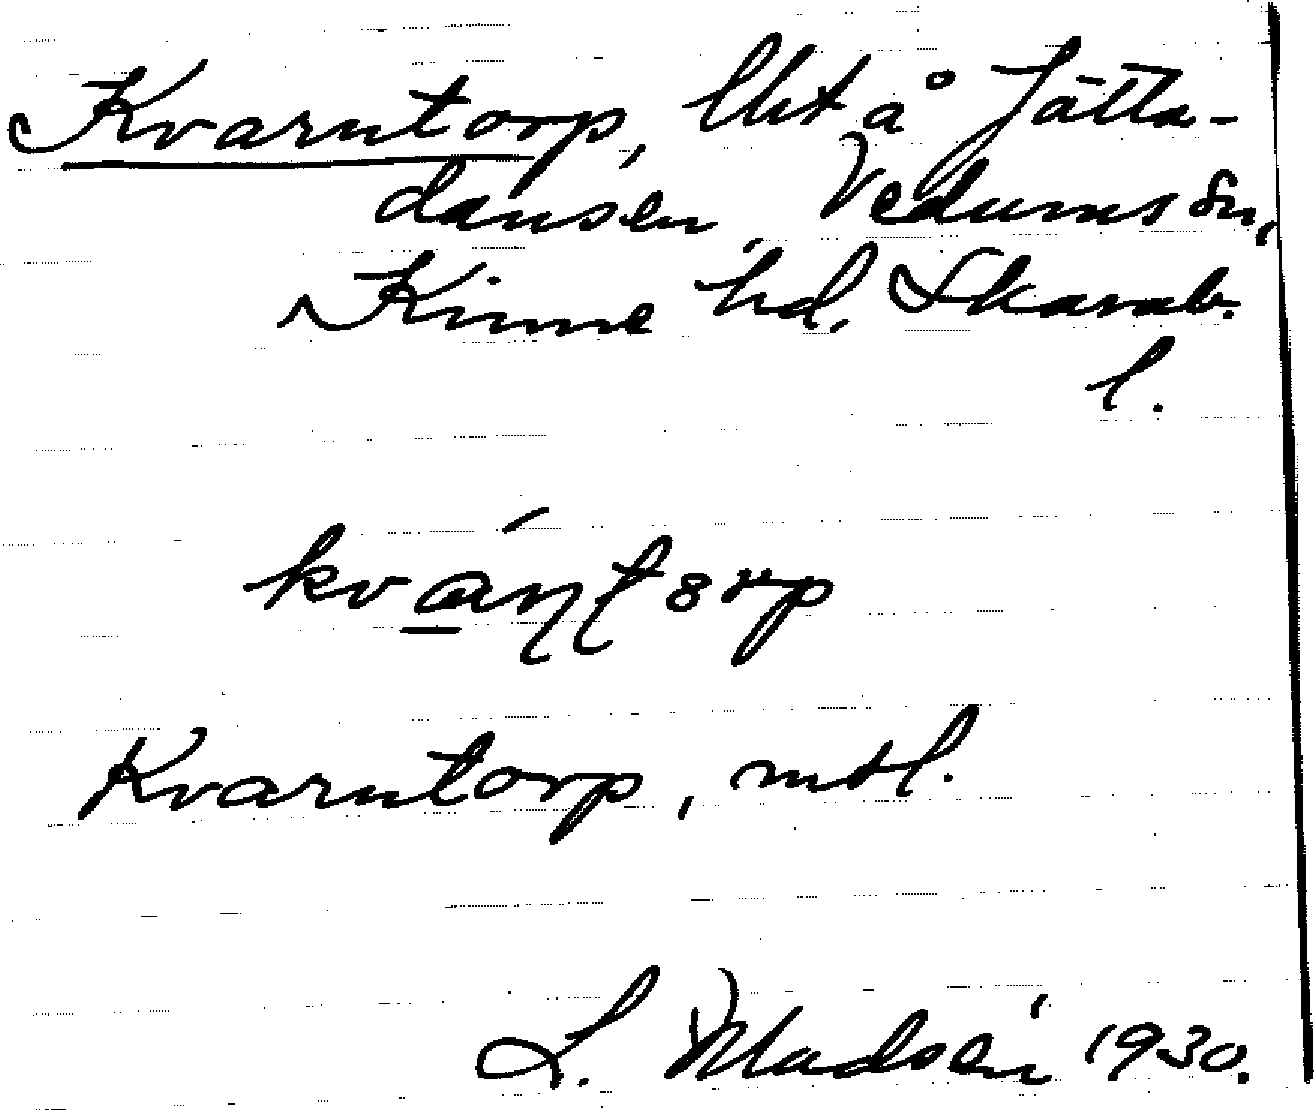 Kvarntorp, lht å Jätta-
dansen, Vedums sn,
Kinne hd, Skarab.
l.
kvántorp
Kvarntorp, mtl.
L. Madsén 1930.